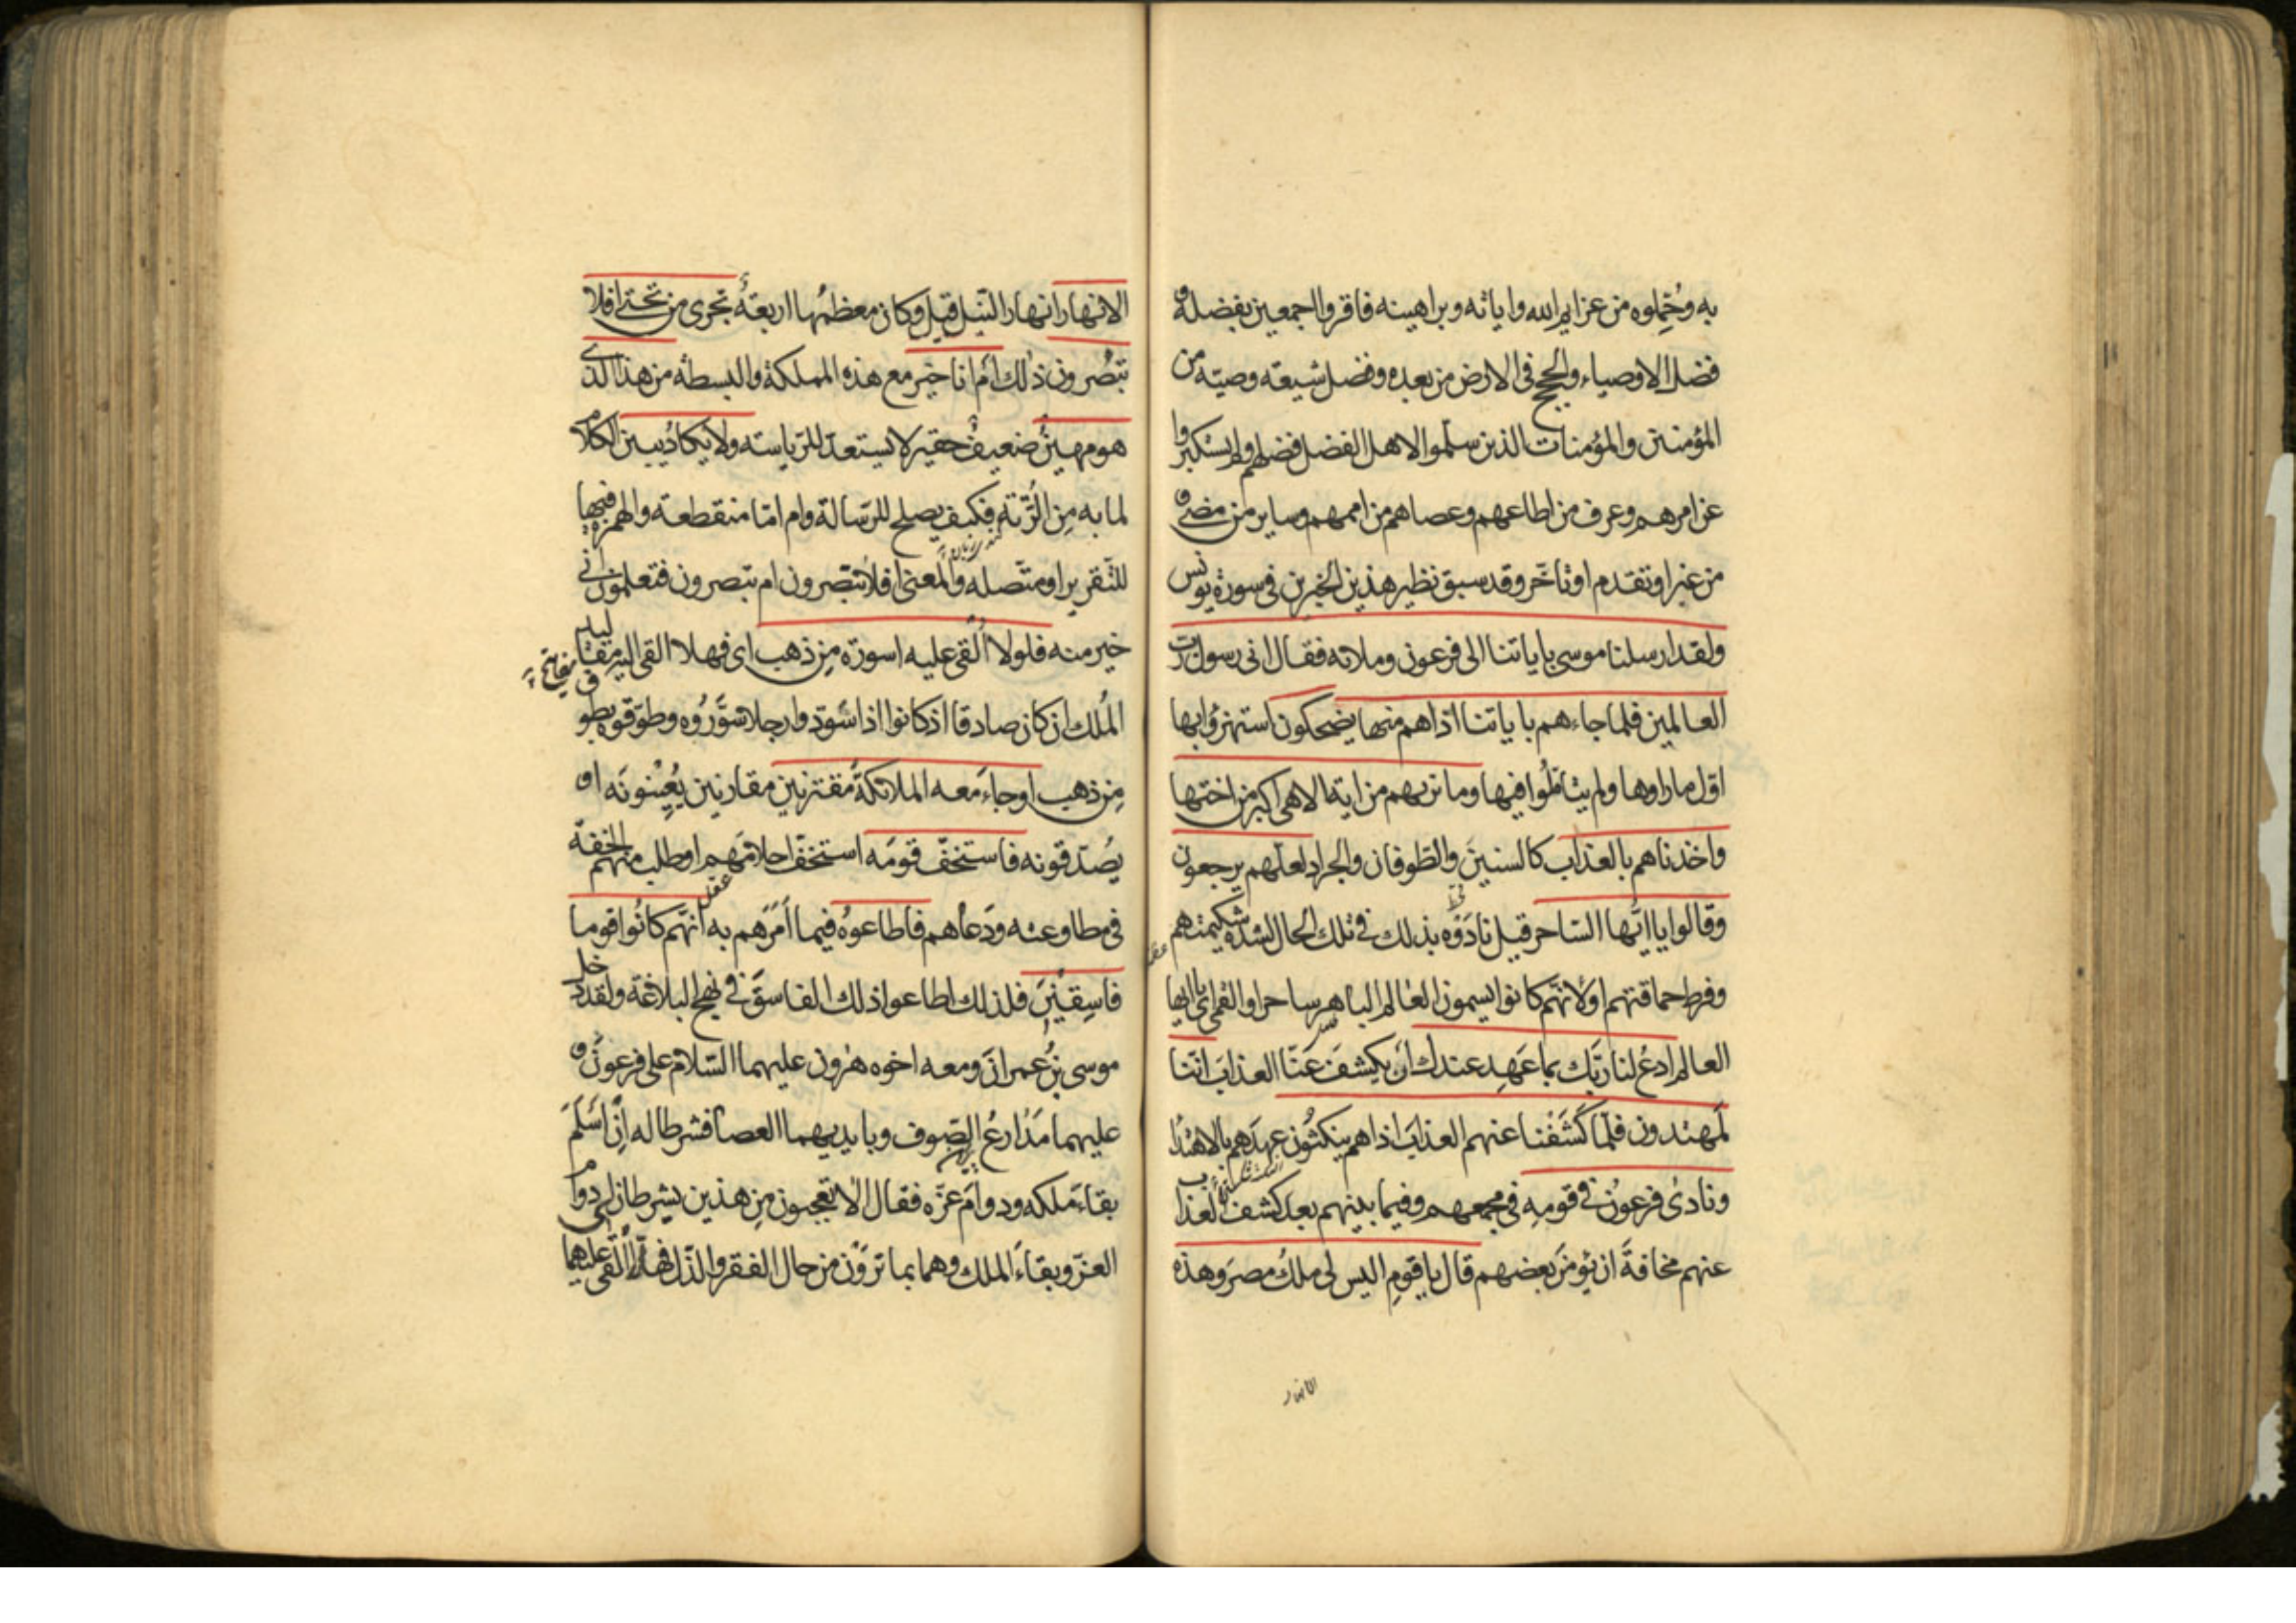 به وحُمِّلوه من عزايم الله واياته وبراهينه فاقروا اجمعين بفضله و
فضل الاوصياء والحجج فى الارض من بعده وفضل شيعته وصيته من
المؤمنين والمؤمنات الذين سلموا لاهل الفضل فضلهم ولم يستكبروا
عن امرهم وعرف من اطاعهم وعصاهم من اممهم وساير من مضى و
من غبر او تقدم او تاخّر وقد سبق نظير هذين الخبرين فى سورة يونس
ولقد ارسلنا موسى باياتنا الى فرعون وملائه فقال انى رسول رب
العالمين فلما جاءهم باياتنا اذا هم منها يضحكون استهزؤا بها
اوّل ما راوها ولم يتامّلُوا فيها وما نريهم من اية الا هى اكبر من اختها
واخذناهم بالعذاب كالسنينَ والطوفان والجراد لعلّهم يرجعون
وقالوا يا ايّها السّاحر قيل نادَوْه بذلك فى تلك الحال لشدة شكيمتهم
وفرط حماقتهم او لانّهم كانوا يسمون العالم الباهر ساحرا والقمى اى يا ايها
العالم ادعُ لنا ربّك بما عَهِد عندك أن يكشفَ عَنّا العذابَ انّنا
لَمهتدون فلمّا كَشَفْنا عنهم العذابَ اذا هم ينكثُون عهدَهم بالاهتدا
ونادىٰ فرعونُ فى قومِه فى مجمعهم وفيما بينهم بعد كشف العذاب
عنهم مخافةَ ان يؤمنَ بعضهم قال يا قومِ اليس لى ملكُ مصرَ وهذه
الانهار
الانهار انهار النّيل قيل وكان معظمُها اربعةُ تجرى من تحتى افلا
تبصُرون ذٰلك أم انا خير مع هذه المملكة والبسطة من هذا الذى
هو مهينٌ ضعيفٌ حقيرٌ لا يستعدّ للرّياسته ولا يكادُ يبين الكلام
لما به مِن الرُّتة فكيف يصلح للرّسالة وام امّا منقطعة والهمزة فيها
للتّقرير او متّصله والمعنى افلا تبصرون ام تبصرون فتعلمون انى
خير منه فلولا اُلقى عليه اسورة مِن ذهب اى فهلا القى اليه مقاليد
المُلك ان كان صادقا اذ كانوا اذا سَوّدوا رجلا سَوَّرُوه وطوّقوه بطوق
مِن ذهب او جاءَ معه الملائكةُ مقترنين مقارنين يُعِينُونَه او
يصُدّقونه فاستخفّ قومَه استخفّ احلامَهم او طلب منهم الخفّة
فى مطاوعته ودَعاهم فاطاعوهُ فيما اَمَرَهم به انّهم كانُوا قوما
فاسِقيْنَ فلذلك اطاعوا ذلك الفاسقَ فى نهج البلاغة ولقد دخل
موسى بنُ عمرانَ ومعه اخوه هٰرون عليهما السّلام على فرعونَ و
عليهما مَدٰارعُ الصّوف وبايديهما العصا فشرطا له اِن اَسْلَمَ
بقاءَ ملكه ودوامَ عزّه فقال الا تعجبون مِن هذين يشرطان لى دوام
العزّ وبقاءَ الملك وهما بما ترَوْن من حال الفقر والذّل فهلّا اُلقى عليهما